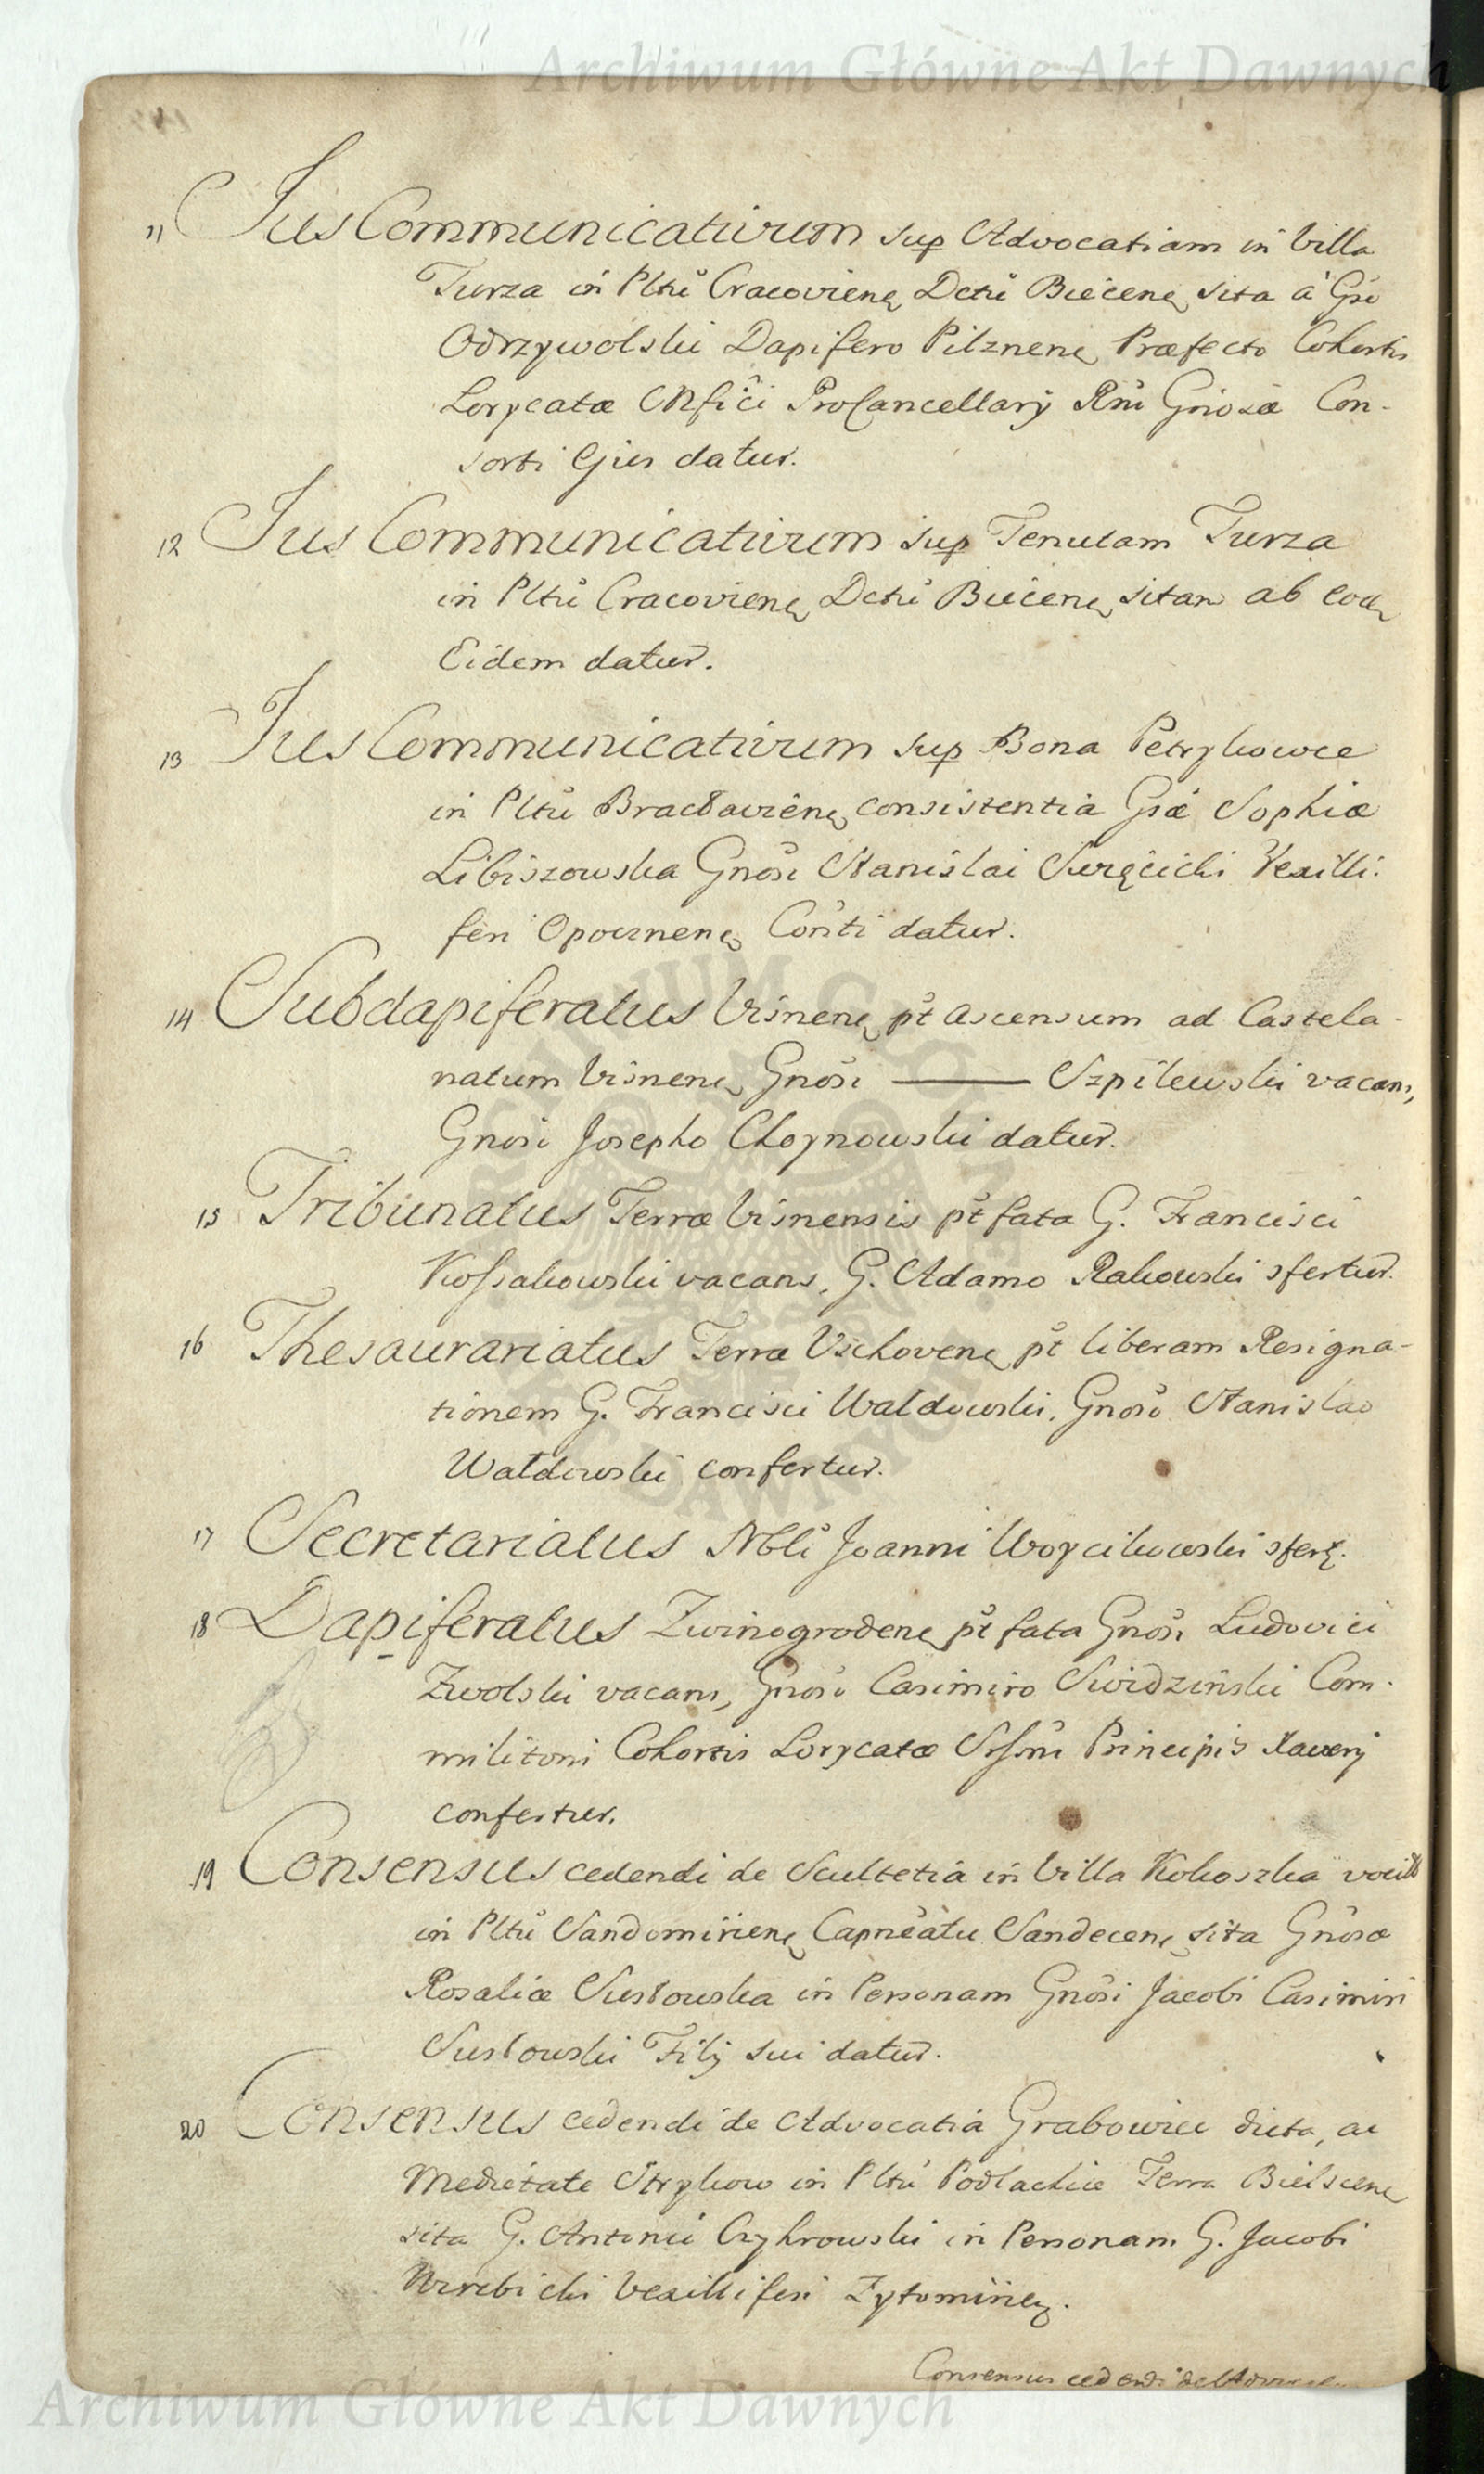 Archiwum Główne Akt Dawnych
11 Jus Communicativum sup Advocatiam in Villa
Turza in Pltũ Cracovienẽ Dctũ Biecenẽ sita à Gso
Odrzywolski Dapifero Pilznenẽ Præfecto Cohortis
Lorycatæ Mfici ProCancellarÿ Rni Gnosæ Con-
sorti Ejus datur.
12 Jus Communicativum sup Tenutam Turza
in Pltũ Cracovienẽ Dctũ Biecenẽ sitam ab eod
Eidem datur.
13 Jus Communicativum sup Bona Petrykowce
in Pltũ Bracłavienẽ consistentia Gsæ Sophiæ
Libiszowska Gnosi Stanislai Swięcicki Vexilli-
feri Opocznenẽ Conti datur.
14 Subdapiferatus Visnenẽ pt ascensum ad Castela-
natum Visnenẽ Gnosi ——— Szpilewski vacans,
Gnoso Josepho Choynowski datur.
15 Tribunatus Terræ Visnensis pt fata G. Francisci
Kossakowski vacans, G. Adamo Rakowski sfertur.
16 Thesaurariatus Terræ Vschovenẽ pt liberam Resigna-
tionem G. Francisci Waldowski, Gnoso Stanislao
Wałdowski confertur.
17 Secretariatus Nbli Joanni Woycikowski sfert.
18 Dapiferatus Zwinogrodenẽ pt fata Gnosi Ludovici
Zwolski vacans, Gnoso Casimiro Swidzinski Com-
militoni Cohortis Lorycatæ Srsmi Principis Xaverj
confertur.
19 Consensus cedendi de Scultetia in Villa Kokoszka
in Pltũ Sandomirienẽ Capneatu Sandecenẽ sita Gnosæ
Rosaliæ Susłowska in Personam Gnosi Jacobi Casimiri
Susłowski Filÿ sui datur.
20 Consensus cedendi de Advocatia Grabowiec dicta, ac
Medietate Strykow in Pltũ Podlachiæ Terra Bielscenẽ
sita G. Antonii Czyhrowski in Personam G. Jacobi
Vexilliferi Zytomirieñ.
Consensus cedendi de
Archiwum Główne Akt Dawnych